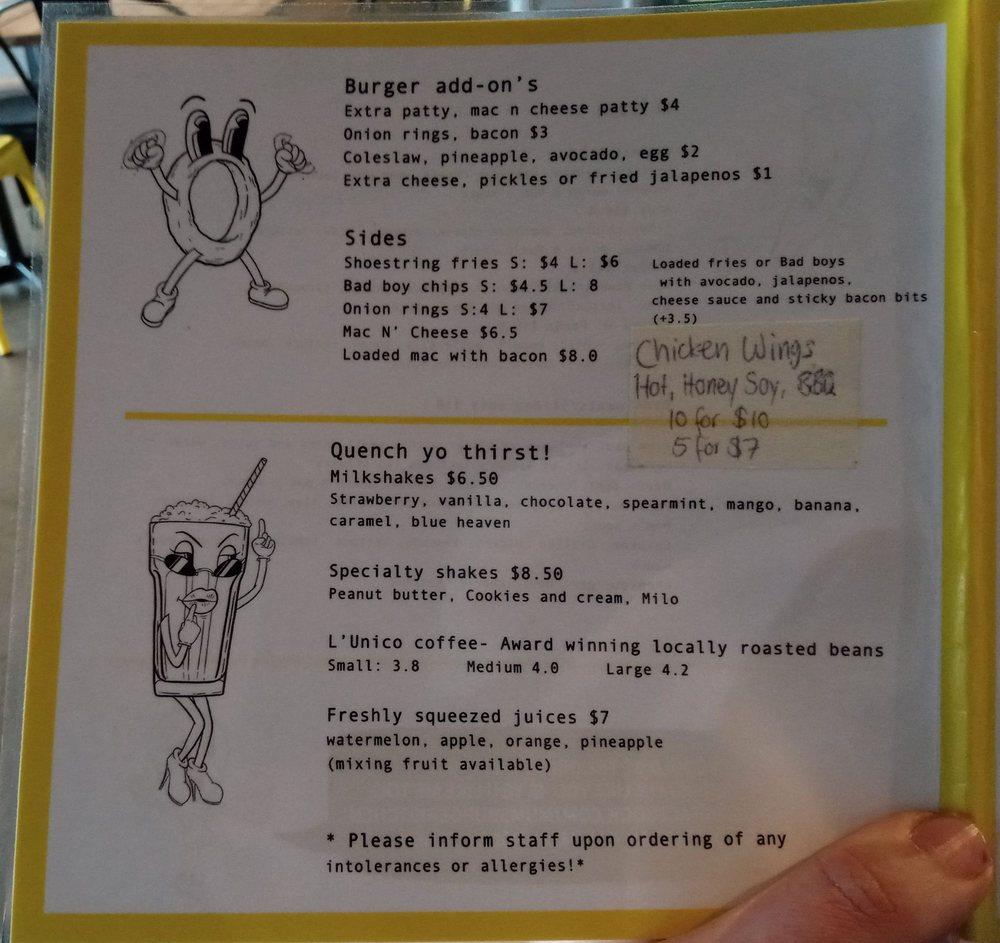 Burger add-on's
Extra patty, mac n cheese patty $4
Onion rings, bacon $3
Coleslaw, pineapple, avocado, egg $2
Extra cheese, pickles or fried jalapenos $1
Sides
Shoestring fries S: $4 L: $6
Bad boy chips S: $4.5 L: 8
Onion rings S:4 L: $7
Mac N' Cheese $6.5
Loaded mac with bacon $8.0
Loaded fries or Bad boys
with avocado, jalapenos,
cheese sauce and sticky bacon bits
(+3.5)
Chicken Wings
Hot, Honey Soy, BBQ
10 for $10
5 for $7
Quench yo thirst!
Milkshakes $6.50
Strawberry, vanilla, chocolate, spearmint, mango, banana,
caramel, blue heaven
Specialty shakes $8.50
Peanut butter, Cookies and cream, Milo
L'Unico coffee- Award winning locally roasted beans
Small: 3.8 Medium 4.0 Large 4.2
Freshly squeezed juices $7
watermelon, apple, orange, pineapple
(mixing fruit available)
* Please inform staff upon ordering of any
intolerances or allergies!*